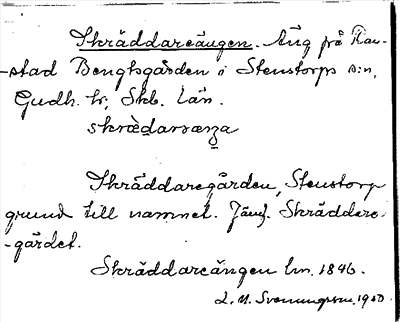 Skräddareängen. Äng på Ran-
-stad Bengtsgården i Stenstorps s:n,
Gudh. hr; Skb. län.
skrædarœŋa
Skräddaregården, Stenstorp
grund till namnet. Jämf. Skräddare-
-gärdet.
Skräddareängen Lm. 1846.
L. M. Svenungsson. 1930